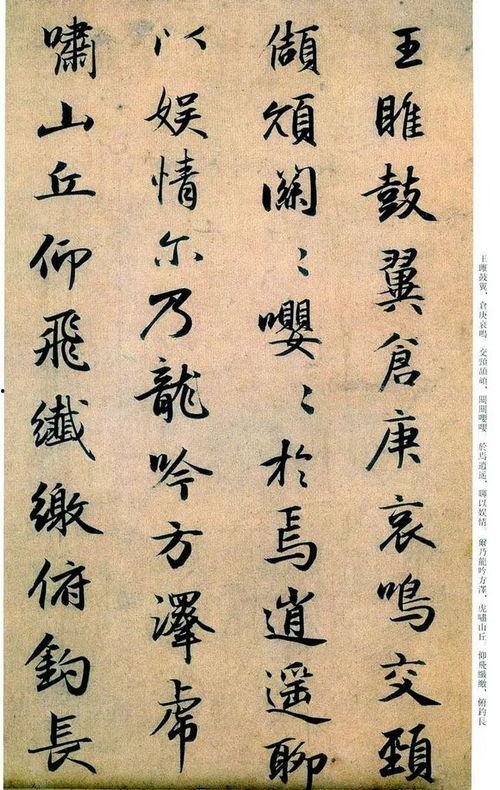 王雎鼓翼倉庚哀鳴交頸
頡頏關〻嚶〻於焉逍遥聊
以娱情尔乃龍吟方澤虎
嘯山丘仰飛纖繳俯釣長
王雎鼓翼，倉庚哀鳴，交頸頡頏，關關嚶嚶。於焉逍遥，聊以娱情。爾乃龍吟方澤，虎嘯山丘。仰飛纖繳，俯釣長